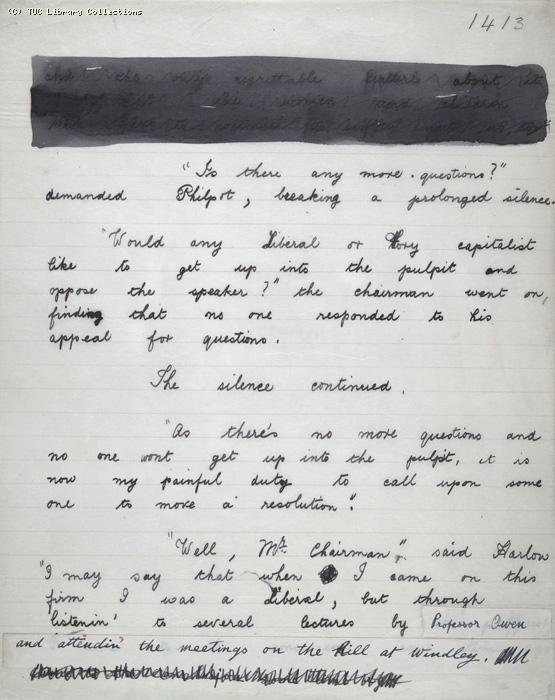 (C) TUC Library Collections
1413
the only regrettable about it
the women and children
"Is there any more questions?"
demanded Philpot, breaking a prolonged silence.
"Would any Liberal or Tory capitalist
like to get up into the pulpit and
oppose the speaker?" the chairman went on,
finding that no one responded to his
appeal for questions.
The silence continued.
"As there's no more questions and
no one wont get up into the pulpit, it is
now my painful duty to call upon some
one to move a resolution".
"Well, Mr. Chairman", said Harlow
"I may say that when I came on this
firm I was a Liberal, but through
listenin' to several lectures by Professor Owen
and attendin' the meetings on the hill at Windley.